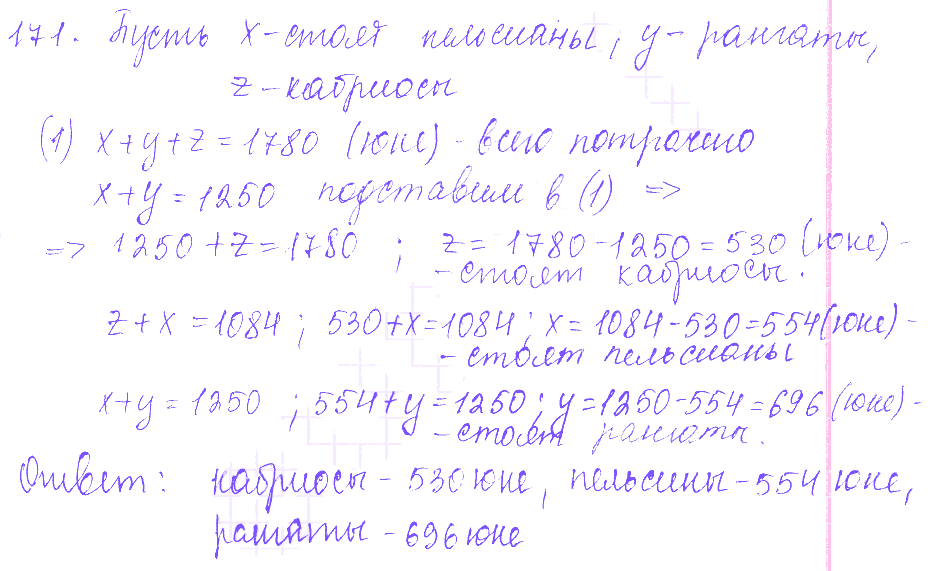 171. Пусть x-стоят пельсианы, y- рангаты,
z-кабриосы
(1) x+y+z=1780 (юне)-всего потрачено
x+y=1250 подставим в (1) =>
=> 1250+z=1780 ; z=1780-1250=530 (юне)-
-стоят кабриосы.
z+x=1084; 530+x=1084; x=1084-530=554(юне)-
-стоят пельсианы
x+y=1250 ; 554+y=1250; y=1250-554=696 (юне)-
-стоят рангаты.
Ответ: кабриосы-530 юне, пельсины-554 юне,
рангаты-696 юне